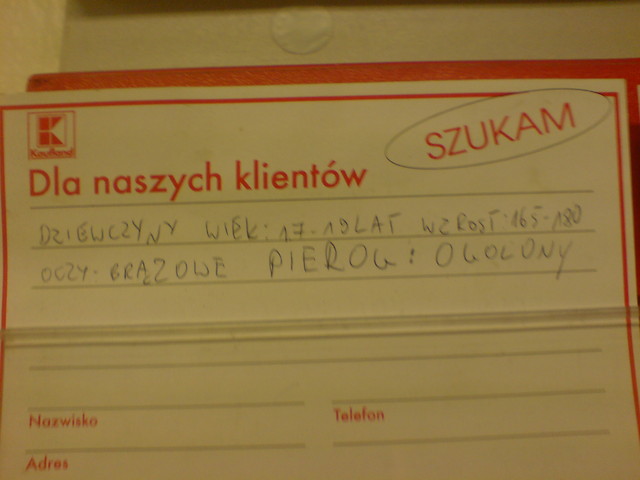 Kaufland
SZUKAM
Dla naszych klientów
DZIEWCZYNY WIEK: 17-19LAT WZROST: 165-180
OCZY-BRĄZOWE PIEROG: OGOLONY
Nazwisko
Telefon
Adres